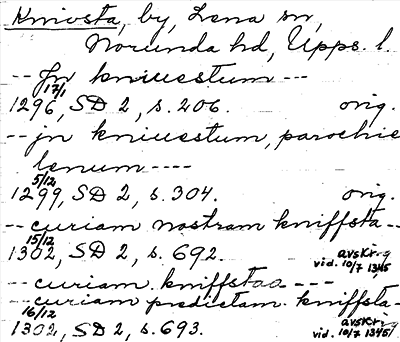 Knivsta, by, Lena sn,
Norunda hd, Upps. l.
-- Jn kniuestum ---
17/1
1296, SD 2, s. 206. orig.
-- jn kniuestum, parochie
lenum ----
5/12
1299, SD 2, s. 304. orig.
-- curiam nostram kniffsta --
15/12
1302, SD 2, s. 692. avskr. g
vid. 10/7 1345
-- curiam kniffstaa ---
-- curiam predictam kniffsta-
16/12
1302, SD 2, s. 693. avskr.
vid. 10/7 1345